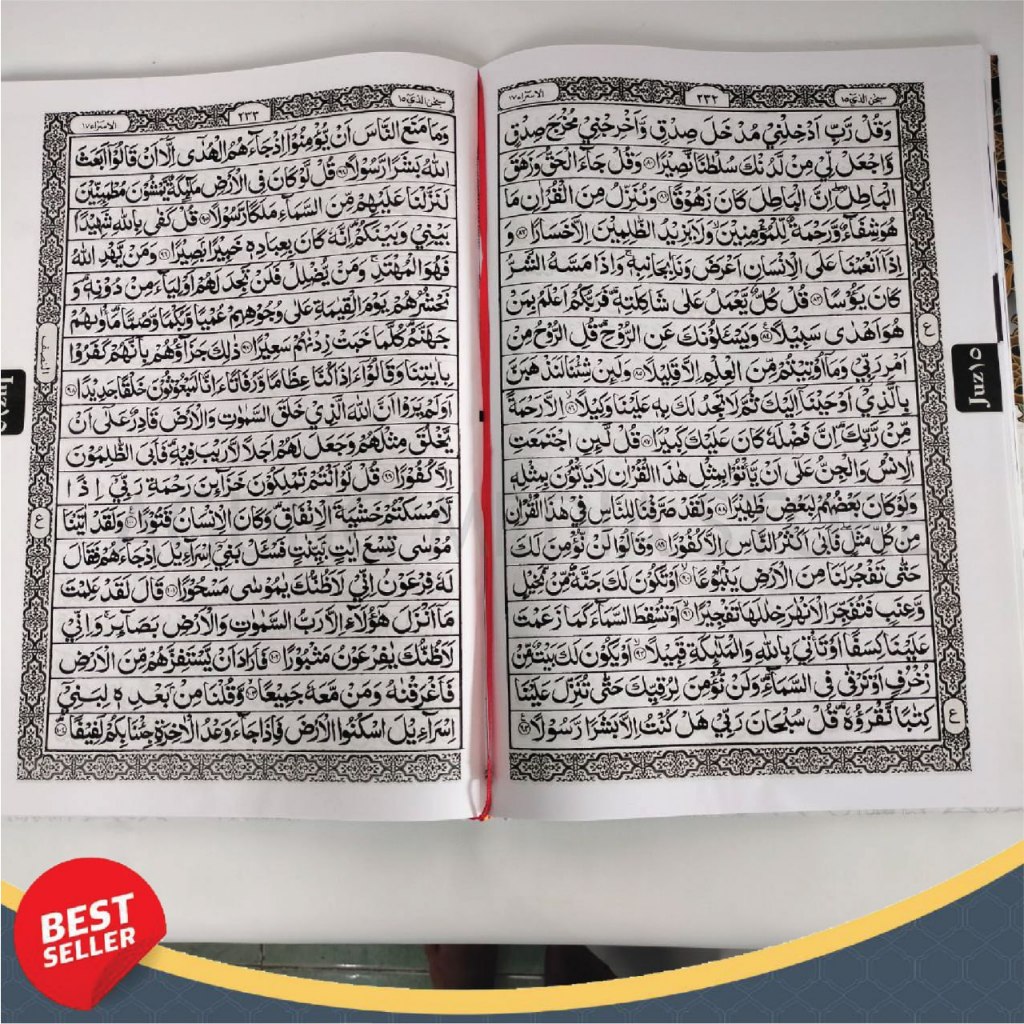 سبحن الذي ١٥
٢٣٢
الاسراء ١٧
وَقُلْ رَّبِّ اَدْخِلْنِيْ مُدْخَلَ صِدْقٍ وَّاَخْرِجْنِيْ مُخْرَجَ صِدْقٍ
وَّاجْعَلْ لِّيْ مِنْ لَّدُنْكَ سُلْطٰنًا نَّصِيْرًا ٨٠ وَقُلْ جَاۤءَ الْحَقُّ وَزَهَقَ
الْبَاطِلُ ۗاِنَّ الْبَاطِلَ كَانَ زَهُوْقًا ٨١ وَنُنَزِّلُ مِنَ الْقُرْاٰنِ مَا
هُوَ شِفَاۤءٌ وَّرَحْمَةٌ لِّلْمُؤْمِنِيْنَۙ وَلَا يَزِيْدُ الظّٰلِمِيْنَ اِلَّا خَسَارًا ٨٢ وَ
اِذَآ اَنْعَمْنَا عَلَى الْاِنْسَانِ اَعْرَضَ وَنَاٰ بِجَانِبِهٖۚ وَاِذَا مَسَّهُ الشَّرُّ
كَانَ يَـُٔوْسًا ٨٣ قُلْ كُلٌّ يَّعْمَلُ عَلٰى شَاكِلَتِهٖۗ فَرَبُّكُمْ اَعْلَمُ بِمَنْ
هُوَ اَهْدٰى سَبِيْلًا ٨٤ وَيَسْـَٔلُوْنَكَ عَنِ الرُّوْحِۗ قُلِ الرُّوْحُ مِنْ
اَمْرِ رَبِّيْ وَمَآ اُوْتِيْتُمْ مِّنَ الْعِلْمِ اِلَّا قَلِيْلًا ٨٥ وَلَىِٕنْ شِئْنَا لَنَذْهَبَنَّ
بِالَّذِيْٓ اَوْحَيْنَآ اِلَيْكَ ثُمَّ لَا تَجِدُ لَكَ بِهٖ عَلَيْنَا وَكِيْلًا ٨٦ اِلَّا رَحْمَةً
مِّنْ رَّبِّكَۗ اِنَّ فَضْلَهٗ كَانَ عَلَيْكَ كَبِيْرًا ٨٧ قُلْ لَّىِٕنِ اجْتَمَعَتِ
الْاِنْسُ وَالْجِنُّ عَلٰٓى اَنْ يَّأْتُوْا بِمِثْلِ هٰذَا الْقُرْاٰنِ لَا يَأْتُوْنَ بِمِثْلِهٖ
وَلَوْ كَانَ بَعْضُهُمْ لِبَعْضٍ ظَهِيْرًا ٨٨ وَلَقَدْ صَرَّفْنَا لِلنَّاسِ فِيْ هٰذَا الْقُرْاٰنِ
مِنْ كُلِّ مَثَلٍۖ فَاَبٰىٓ اَكْثَرُ النَّاسِ اِلَّا كُفُوْرًا ٨٩ وَقَالُوْا لَنْ نُّؤْمِنَ لَكَ
حَتّٰى تَفْجُرَ لَنَا مِنَ الْاَرْضِ يَنْۢبُوْعًا ٩٠ اَوْ تَكُوْنَ لَكَ جَنَّةٌ مِّنْ نَّخِيْلٍ
وَّعِنَبٍ فَتُفَجِّرَ الْاَنْهٰرَ خِلٰلَهَا تَفْجِيْرًا ٩١ اَوْ تُسْقِطَ السَّمَاۤءَ كَمَا زَعَمْتَ
عَلَيْنَا كِسَفًا اَوْ تَأْتِيَ بِاللّٰهِ وَالْمَلٰۤىِٕكَةِ قَبِيْلًا ٩٢ اَوْ يَكُوْنَ لَكَ بَيْتٌ مِّنْ
زُخْرُفٍ اَوْ تَرْقٰى فِى السَّمَاۤءِۗ وَلَنْ نُّؤْمِنَ لِرُقِيِّكَ حَتّٰى تُنَزِّلَ عَلَيْنَا
كِتٰبًا نَّقْرَؤُهٗۗ قُلْ سُبْحَانَ رَبِّيْ هَلْ كُنْتُ اِلَّا بَشَرًا رَّسُوْلًا ٩٣
ع
ع
Juz ١٥
سبحن الذي ١٥
٢٣٣
الاسراء ١٧
وَمَا مَنَعَ النَّاسَ اَنْ يُّؤْمِنُوْٓا اِذْ جَاۤءَهُمُ الْهُدٰٓى اِلَّآ اَنْ قَالُوْٓا اَبَعَثَ
اللّٰهُ بَشَرًا رَّسُوْلًا ٩٤ قُلْ لَّوْ كَانَ فِى الْاَرْضِ مَلٰۤىِٕكَةٌ يَّمْشُوْنَ مُطْمَىِٕنِّيْنَ
لَنَزَّلْنَا عَلَيْهِمْ مِّنَ السَّمَاۤءِ مَلَكًا رَّسُوْلًا ٩٥ قُلْ كَفٰى بِاللّٰهِ شَهِيْدًاۢ
بَيْنِيْ وَبَيْنَكُمْۗ اِنَّهٗ كَانَ بِعِبَادِهٖ خَبِيْرًاۢ بَصِيْرًا ٩٦ وَمَنْ يَّهْدِ اللّٰهُ
فَهُوَ الْمُهْتَدِۚ وَمَنْ يُّضْلِلْ فَلَنْ تَجِدَ لَهُمْ اَوْلِيَاۤءَ مِنْ دُوْنِهٖۗ وَ
نَحْشُرُهُمْ يَوْمَ الْقِيٰمَةِ عَلٰى وُجُوْهِهِمْ عُمْيًا وَّبُكْمًا وَّصُمًّاۗ مَأْوٰىهُمْ
جَهَنَّمُۗ كُلَّمَا خَبَتْ زِدْنٰهُمْ سَعِيْرًا ٩٧ ذٰلِكَ جَزَاۤؤُهُمْ بِاَنَّهُمْ كَفَرُوْا
بِاٰيٰتِنَا وَقَالُوْٓا ءَاِذَا كُنَّا عِظَامًا وَّرُفَاتًا ءَاِنَّا لَمَبْعُوْثُوْنَ خَلْقًا جَدِيْدًا ٩٨
اَوَلَمْ يَرَوْا اَنَّ اللّٰهَ الَّذِيْ خَلَقَ السَّمٰوٰتِ وَالْاَرْضَ قَادِرٌ عَلٰٓى اَنْ
يَّخْلُقَ مِثْلَهُمْ وَجَعَلَ لَهُمْ اَجَلًا لَّا رَيْبَ فِيْهِۗ فَاَبَى الظّٰلِمُوْنَ
اِلَّا كُفُوْرًا ٩٩ قُلْ لَّوْ اَنْتُمْ تَمْلِكُوْنَ خَزَاۤىِٕنَ رَحْمَةِ رَبِّيْٓ اِذًا
لَّاَمْسَكْتُمْ خَشْيَةَ الْاِنْفَاقِۗ وَكَانَ الْاِنْسَانُ قَتُوْرًا ١٠٠ وَلَقَدْ اٰتَيْنَا
مُوْسٰى تِسْعَ اٰيٰتٍۢ بَيِّنٰتٍ فَسْـَٔلْ بَنِيْٓ اِسْرَاۤءِيْلَ اِذْ جَاۤءَهُمْ فَقَالَ
لَهٗ فِرْعَوْنُ اِنِّيْ لَاَظُنُّكَ يٰمُوْسٰى مَسْحُوْرًا ١٠١ قَالَ لَقَدْ عَلِمْتَ
مَآ اَنْزَلَ هٰٓؤُلَاۤءِ اِلَّا رَبُّ السَّمٰوٰتِ وَالْاَرْضِ بَصَاۤىِٕرَۚ وَاِنِّيْ
لَاَظُنُّكَ يٰفِرْعَوْنُ مَثْبُوْرًا ١٠٢ فَاَرَادَ اَنْ يَّسْتَفِزَّهُمْ مِّنَ الْاَرْضِ
فَاَغْرَقْنٰهُ وَمَنْ مَّعَهٗ جَمِيْعًا ١٠٣ وَّقُلْنَا مِنْۢ بَعْدِهٖ لِبَنِيْٓ
اِسْرَاۤءِيْلَ اسْكُنُوا الْاَرْضَ فَاِذَا جَاۤءَ وَعْدُ الْاٰخِرَةِ جِئْنَا بِكُمْ لَفِيْفًا ١٠٤
النصف
ع
BEST
SELLER